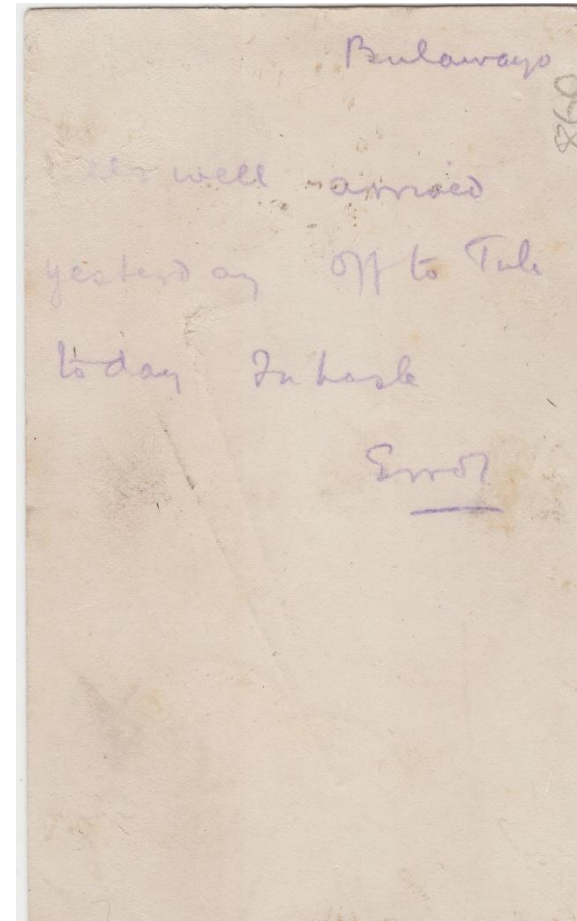 Bulawayo
098
well arrived
yesterday off to Tuli
today In haste
Errol